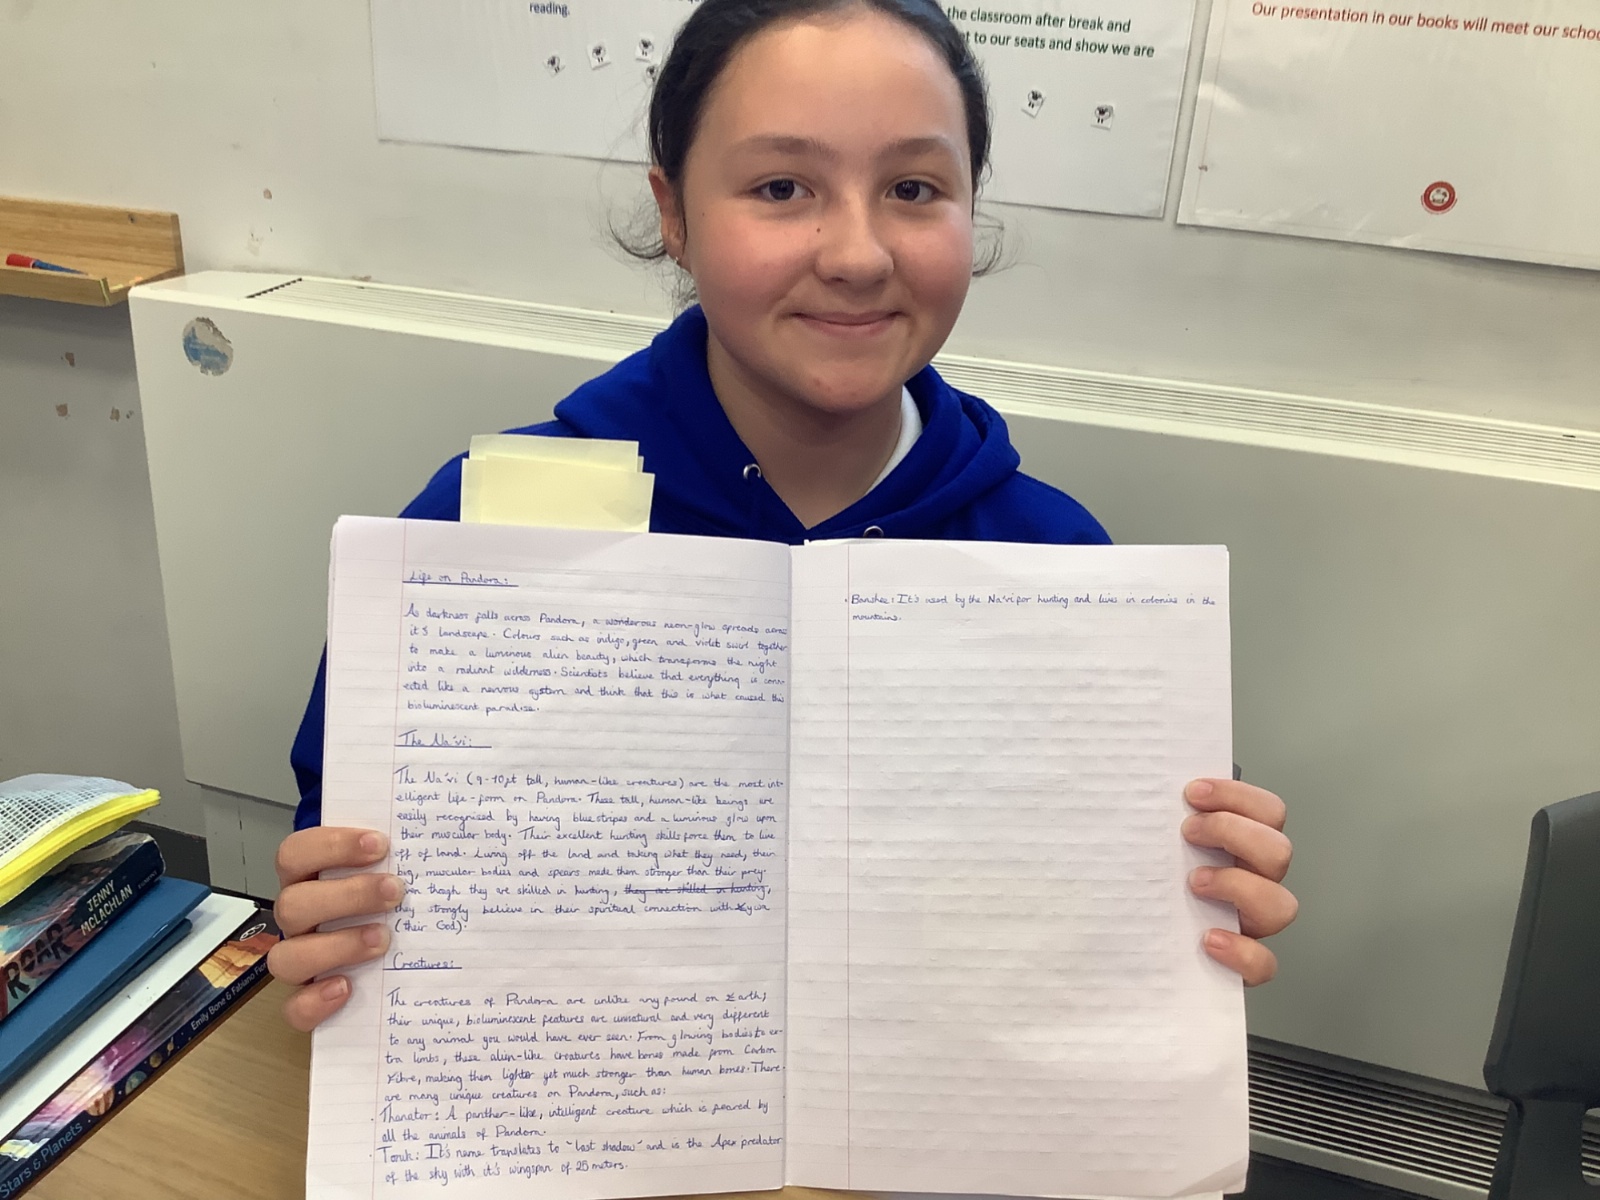 reading.
the classroom after break and
to our seats and show we are
Our presentation in our books will meet our
Life on Pandora:
As darkness falls across Pandora, a wonderous neon-glow spreads across
it's landscape. Colours such as indigo, green and violet swirl together
to make a luminous alien beauty, which transforms the night
into a radiant wilderness. Scientists believe that everything is conn-
ected like a nervous system and think that this is what caused this
bioluminescent paradise.
The Na'vi:
The Na'vi (9-10ft tall, human-like creatures) are the most int-
elligent life-form on Pandora. These tall, human-like beings are
easily recognised by having blue stripes and a luminous glow upon
their muscular body. Their excellent hunting skills force them to live
off of land. Living off the land and taking what they need, their
big, muscular bodies and spears made them stronger than their prey.
Even though they are skilled in hunting, they are skilled in hunting,
they strongly believe in their spiritual connection with Eywa
(their God).
Creatures:
The creatures of Pandora are unlike any found on Earth;
their unique, bioluminescent features are unnatural and very different
to any animal you would have ever seen. From glowing bodies to ex-
tra limbs, these alien-like creatures have bones made from Carbon
Fibre, making them lighter yet much stronger than human bones. There
are many unique creatures on Pandora, such as:
• Thanator: A panther-like, intelligent creature which is feared by
all the animals of Pandora.
• Toruk: It's name translates to "last shadow" and is the Apex predator
of the sky with it's wingspan of 25 meters.
• Banshee: It's used by the Na'vi for hunting and lives in colonies in the
mountains.
JENNY
MCLACHLAN
ROAR
Emily Bone & Fabiano
Stars & Planets